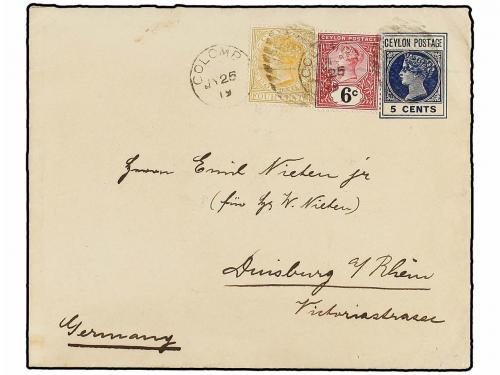 COLOMBO
25
19
CEYLON POSTAGE
6c
CEYLON POSTAGE
5 CENTS
Herrn Emil Nieten jr
(für Hz W. Nieten)
Duisburg a/ Rhein
Victoriastrasse
Germany